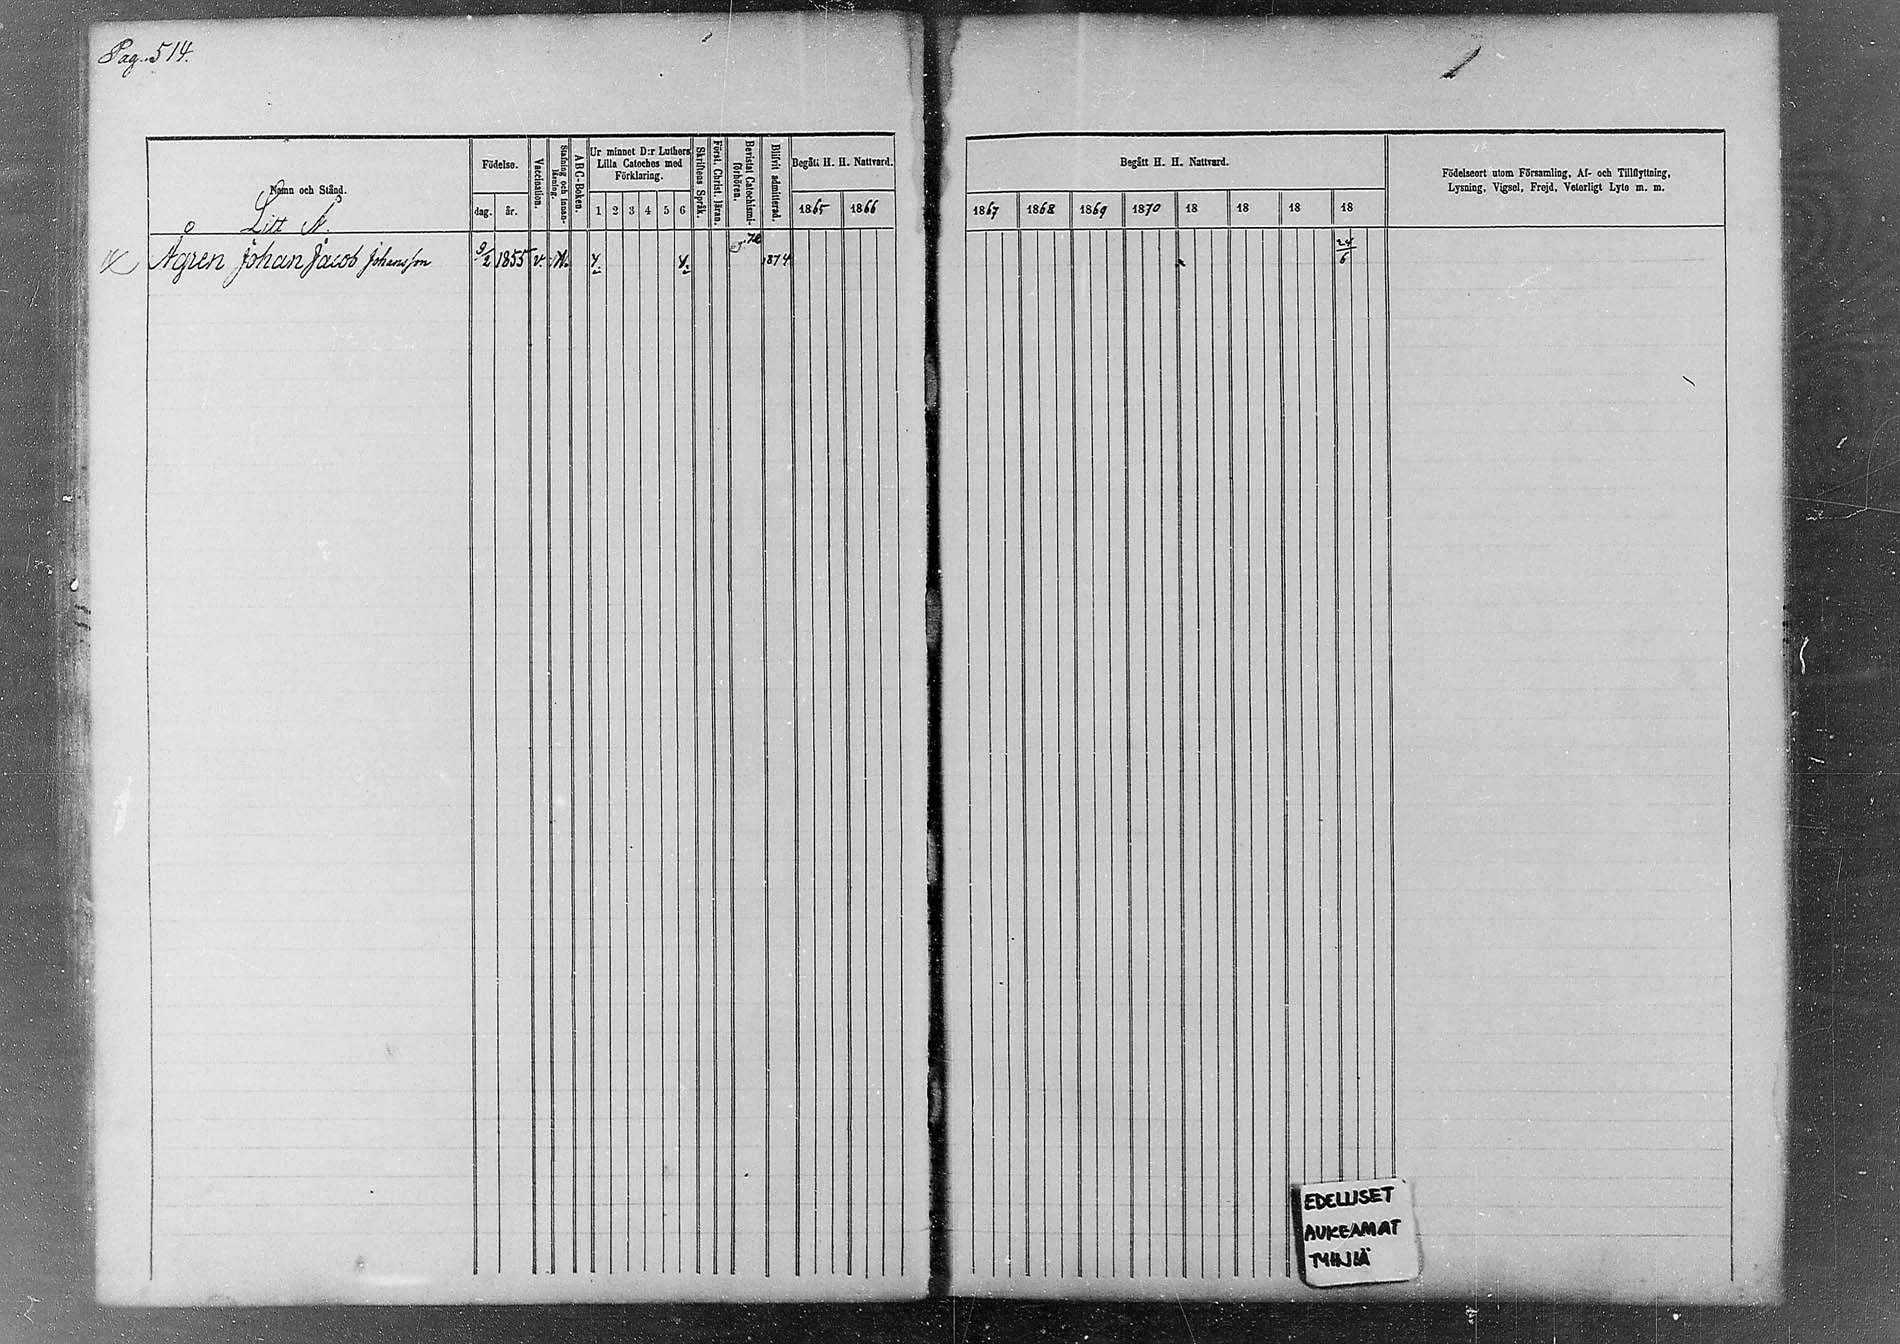 Pag. 514.
Namn och Stånd.
Litt Å.
Födelse.
dag. år.
Vaccination.
Stafning och innanläsning.
ABC-Boken.
Ur minnet D:r Luthers
Lilla Cateches med
Förklaring.
1 2 3 4 5 6
Skriftens Språk.
Först. Christ. läran.
Bevistat Catechismiförhören.
Blifvit admitterad.
Begått H. H. Nattvard.
1865 1866
Begått H. H. Nattvard.
1867 1868 1869 1870 18 18 18 18
Födelseort utom Församling, Af- och Tillflyttning,
Lysning, Vigsel, Frejd, Veterligt Lyte m. m.
Ågren Johan Jacob Johansson 9/2 1855 v. 1874 24/6
EDELLISET
AUKEAMAT
TYHJIÄ